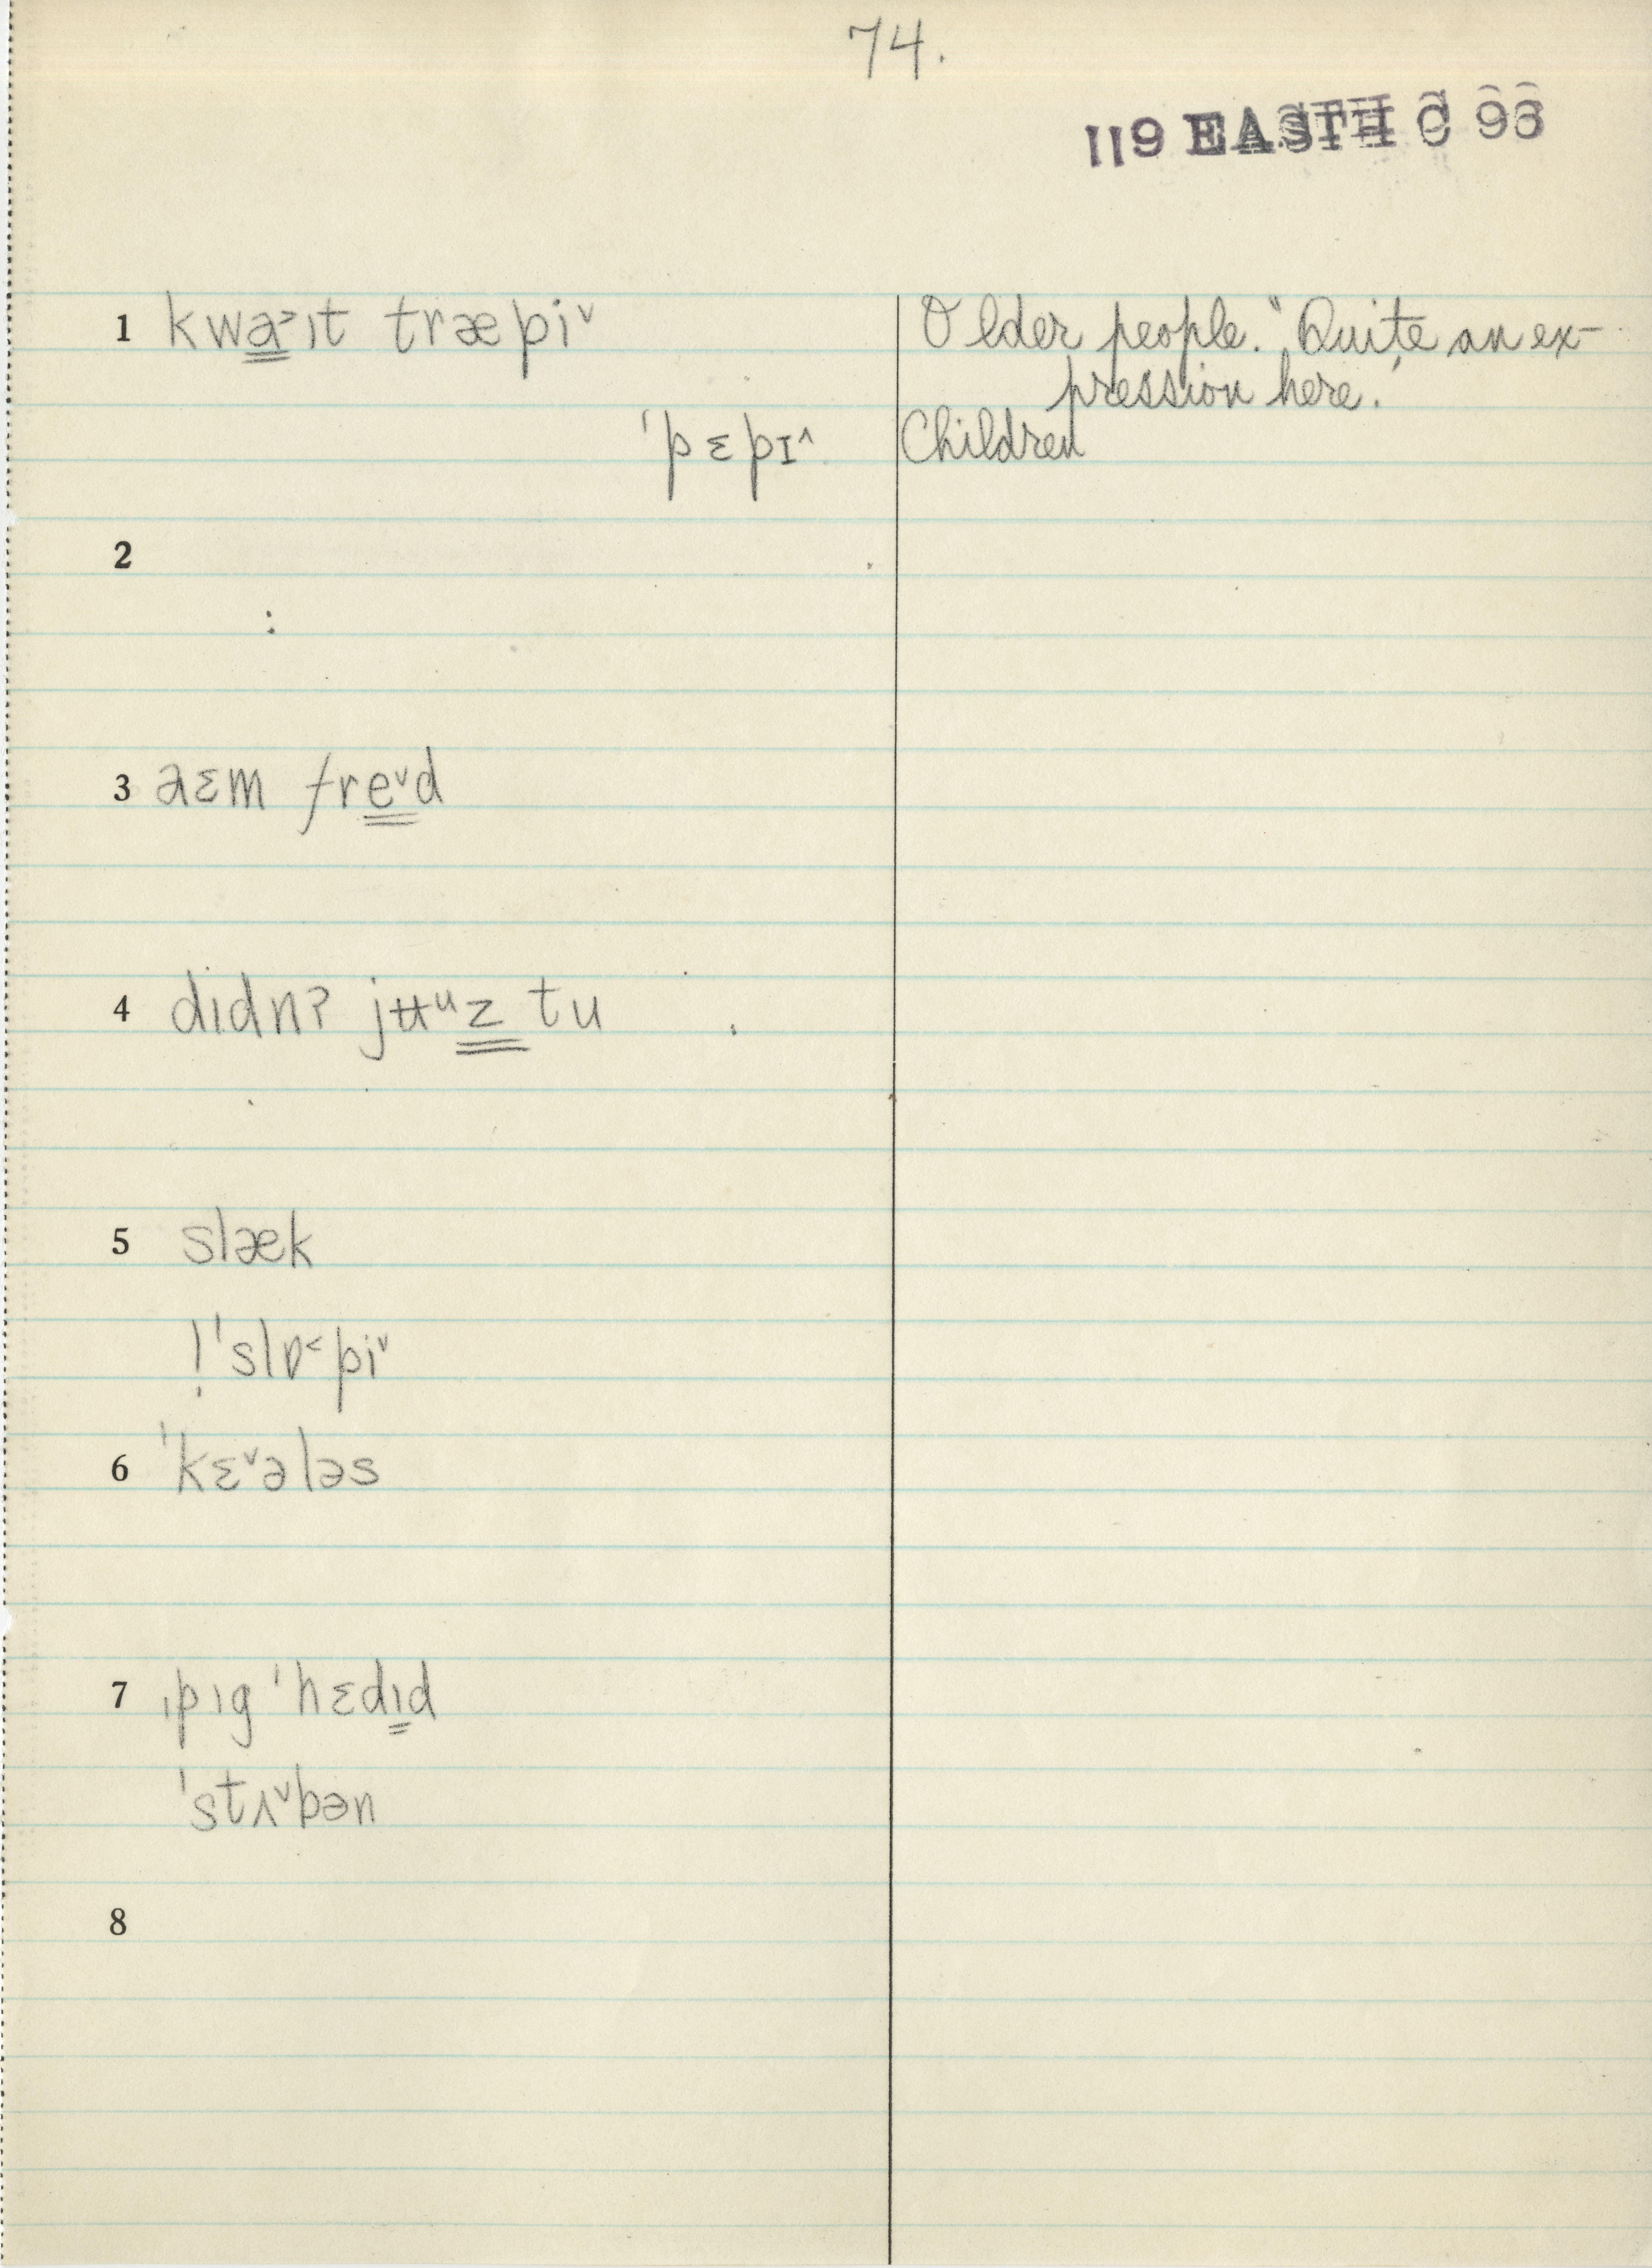 74.
119 EASTH C 96
1 kwa̳˃ɪt træpi˅
Older people. "Quite an ex-
pression here."
ˈpɛpɪ˄
Children
2
:
3 aɛm fre̳˅d
4 dɪdnʔ jʉᵘz̳ tu
5 slæk
! ˈslɒ˂pi˅
6 ˈkɛ˅ələs
7 ˌpɪg ˈhɛdɪ̳d
ˈstʌ˅bən
8